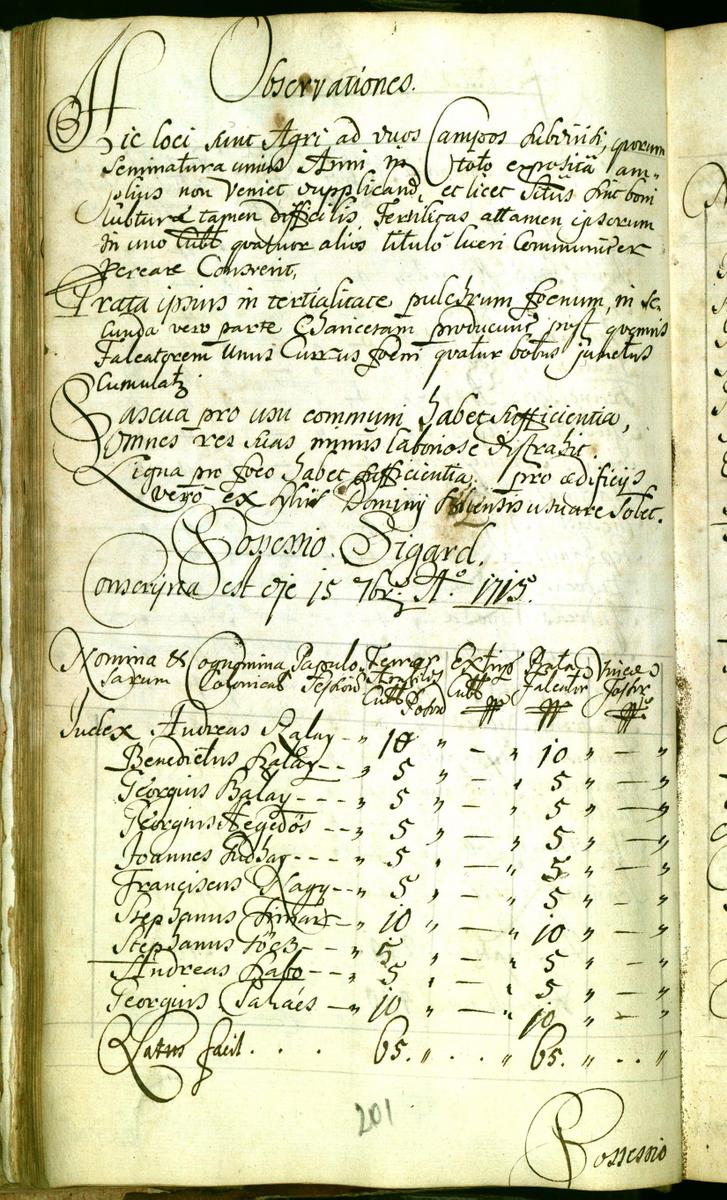 Observationes.
Hic loci sunt Agri ad duos Campos subdivisi, quorum
Seminatura unius Anni, in toto exposita am-
plius non Veniet dupplicand, et licet Situs sint boni
Cultura tamen difficilis Fertilitas attamen ipsorum
in uno Cub: quatuor alios titulo lucri Communiter
Procreare Consvevit,
Prata ipsius in tertialitate pulchrum foenum, in se-
cunda vero parte producunt, post quemvis
Falcatorem Unus Currus foeni quatuor bobus junctus
Cumulatz
Pascua pro usu communi habet sufficientia,
Omnes res suas minus laboriose distrahit.
Ligna pro foco habet sufficientia, pro aedificijs
vero ex Dominij usuare Solet.
Possessio Sigard.
Conscripta est die 15 7bris Ao. 1715.
Nomina & Cognomina Papulo- Terrae Extirp Prata Vineae
sarum Colonicales Cub: Cub: Falcator Fossor
Judex Andreas Kalay - " 10 " - " 10 " - "
Benedictus Kalay - - " 5 " - " 5 " - "
Georgius Balay - - - " 5 " - " 5 " - "
Georgius Hegedös - - " 5 " - " 5 " - "
Joannes - - - " 5 " - " 5 " - "
Franciscus Nagy - - " 5 " - " 5 " - "
Stephanus - " 10 " - " 10 " - "
Stephanus - " 5 " - " 5 " - "
Andreas Szabo - - " 5 " - " 5 " - "
Georgius Takács - " 10 " - " 10 " - "
Latus facit . . . . 65. " . . " 65. " . . "
201
Possessio